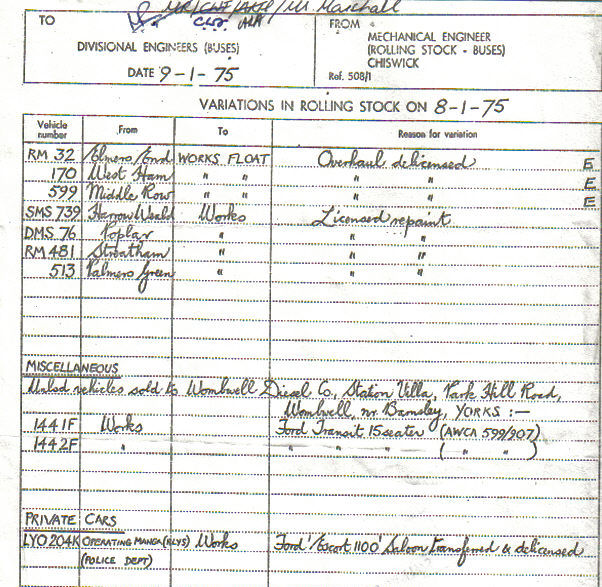 MR/CWF/AKEP/Mr. Marshall
TO
FROM
DIVISIONAL ENGINEERS (BUSES)
MECHANICAL ENGINEER
(ROLLING STOCK - BUSES)
CHISWICK
DATE 9-1-75
Ref. 508/1
VARIATIONS IN ROLLING STOCK ON 8-1-75
Vehicle number From To Reason for variation
RM 32 Elmers End WORKS FLOAT Overhaul delicensed E
170 West Ham " " " " E
599 Middle Row " " " " E
SMS 739 Harrow Weald Works Licensed repaint
DMS 76 Poplar " " "
RM 481 Streatham " " "
513 Palmers Green " " "
MISCELLANEOUS
vehicles sold to Wombwell Diesel Co., Station Villa, Park Hill Road,
Wombwell, nr. Barnsley, YORKS :-
1441F Works Ford Transit 15 seater (AWCA 599/907)
1442F " " " " ( " " )
PRIVATE CARS
LYO 204K OPERATING MANGR (RLYS) Works Ford 'Escort 1100' Saloon transferred & delicensed
(POLICE DEPT)